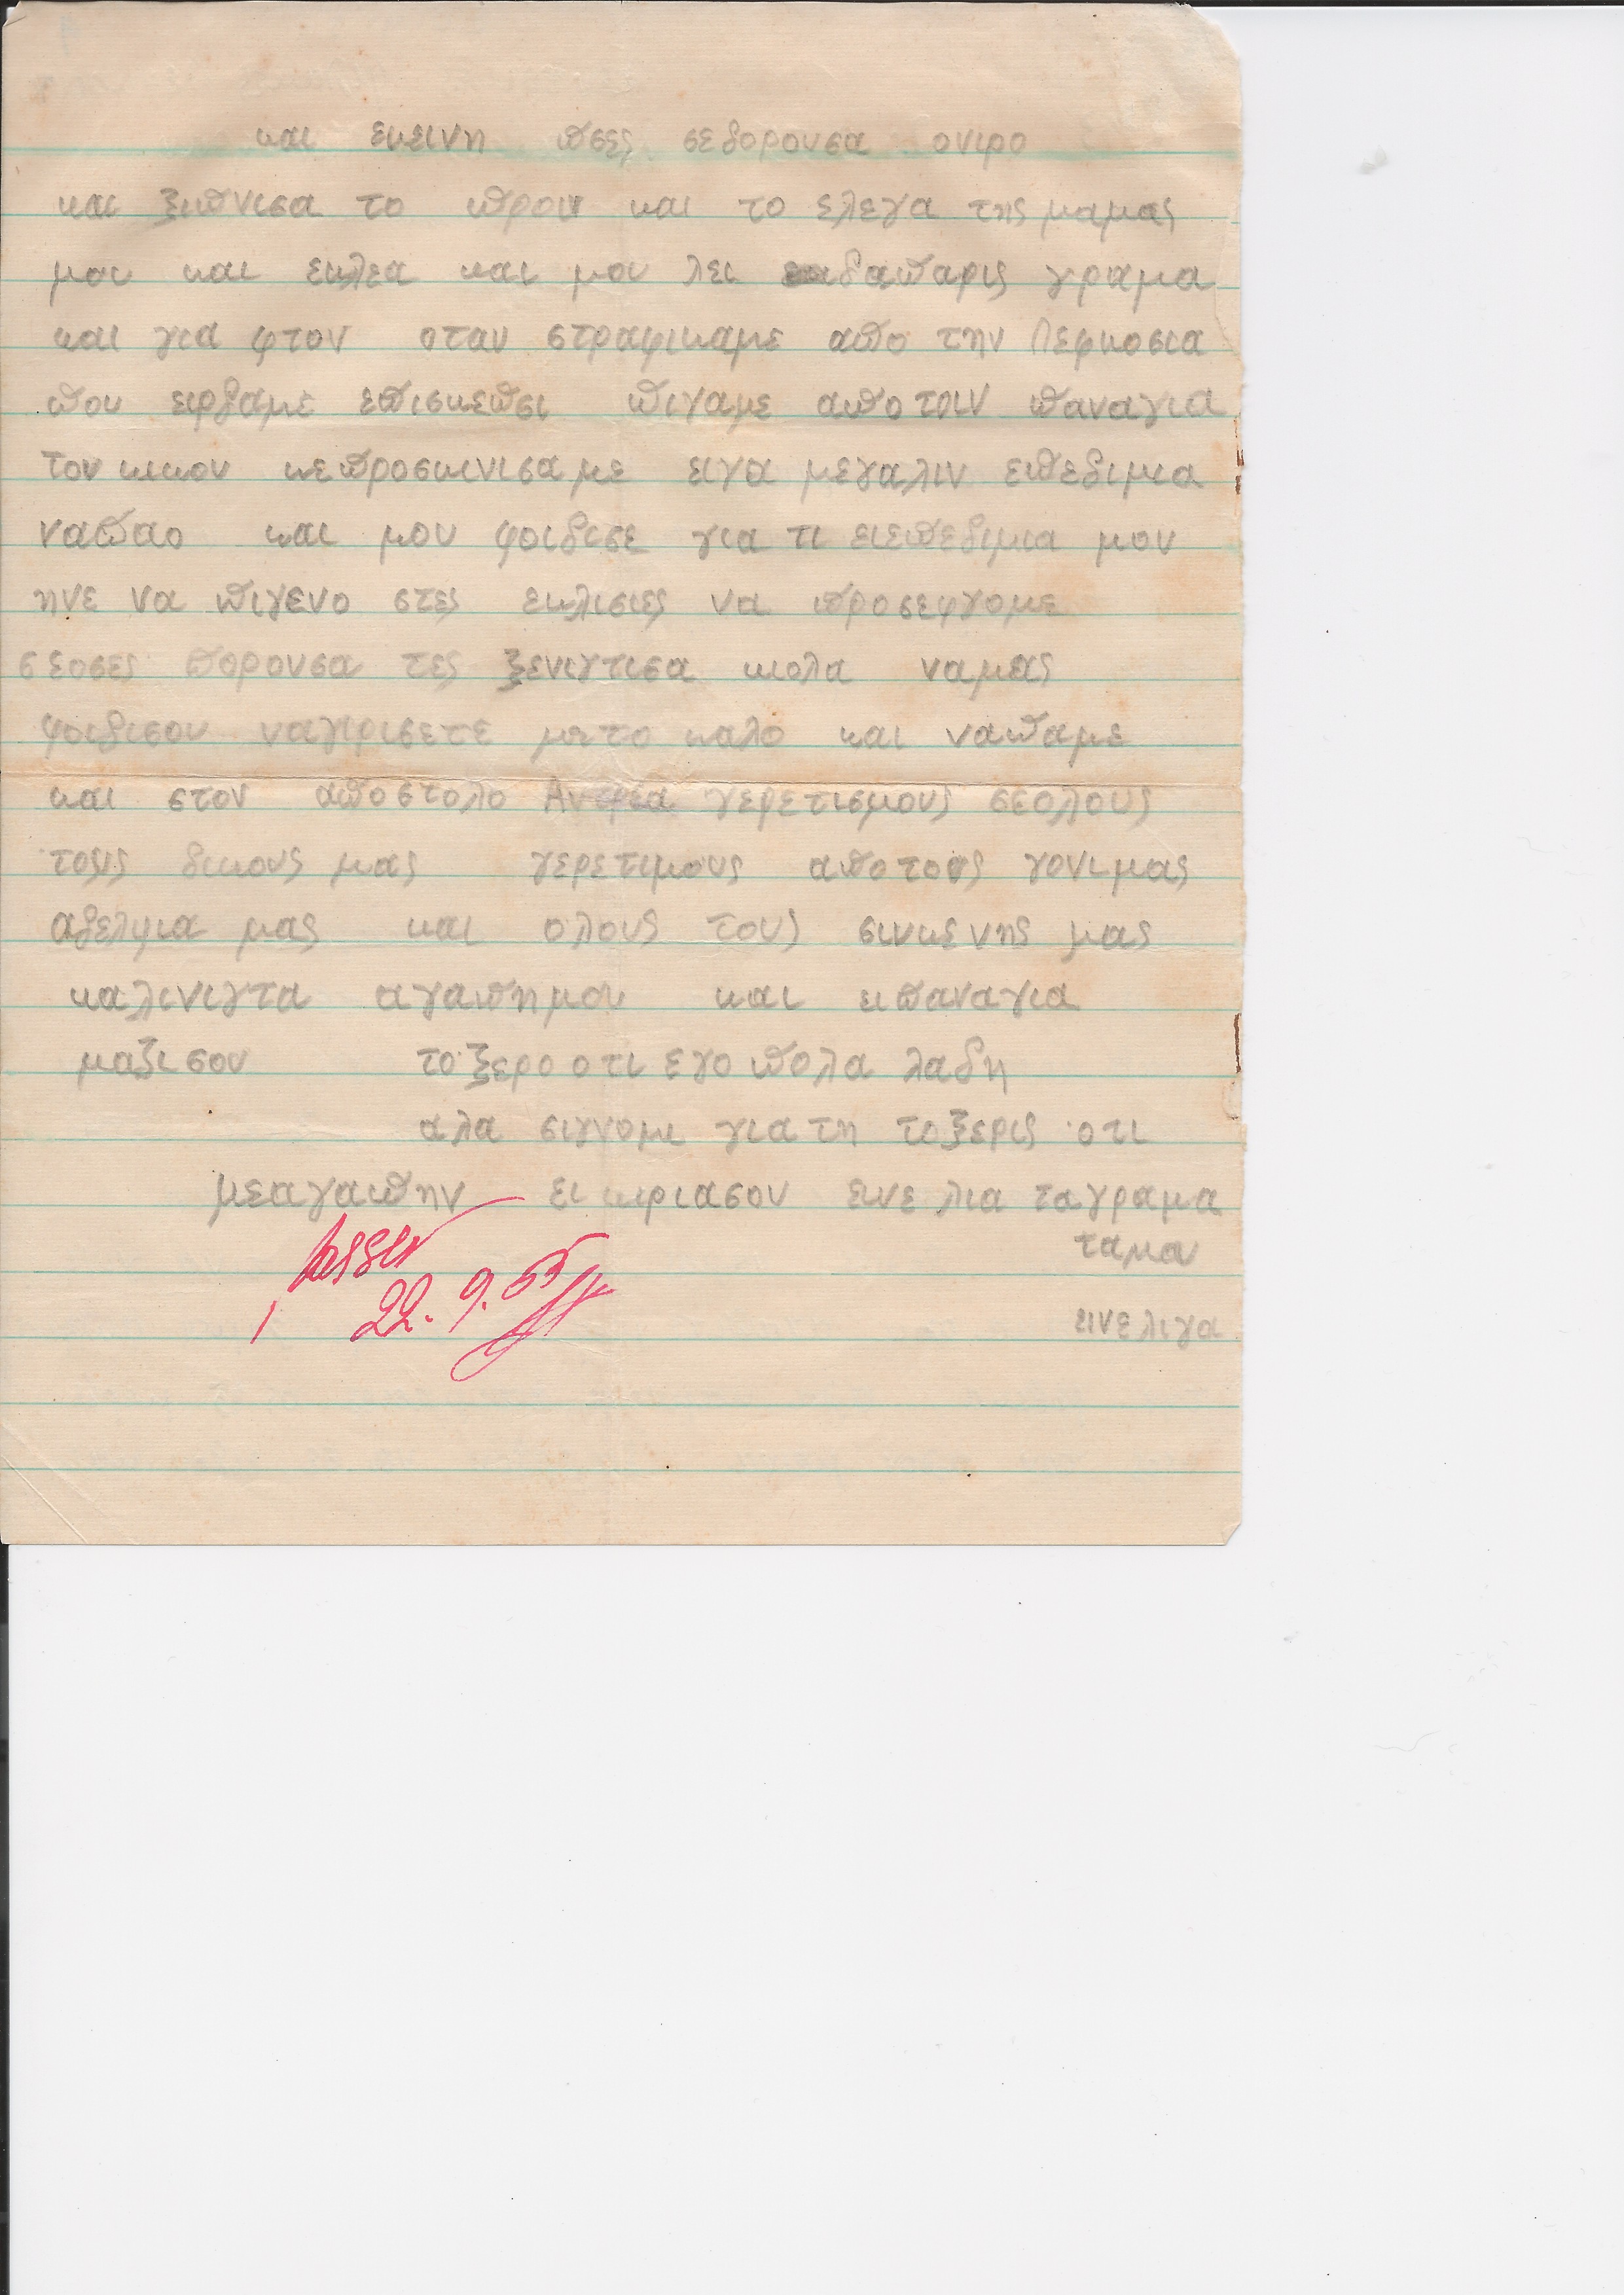 και εκεινη πσες σεδορουσα ονιρο
και ξιπνισα το προι και το ελεγα της μαμας
μου και εκλεα και μου λει δαπαρις γραμα
και για φτον οταν στραφικαμε απο την Λεφκοσια
που ειρδαμε επισκεπσι πιγαμε αποτοιν παναγια
του κικου κεπροσκινισαμε ειγα μεγαλιν επεδιμια
ναπαο και μου φοιδισε για τι ειεπεδιμια μου
ηνε να πιγενο στες εκλισιες να προσεφγομε
σεοσες πορουσα τες ξενιγτισα κιολα ναμας
φοιδισου ναγιρισετε με το καλο και ναπαμε
και στον αποστολο γερετισμους σεολους
τους δικους μας γερετιμους αποτους γονιμας
αδελφια μας και ολους τους σινκενης μας
καλινιγτα αγαπημου και ειπαναγια
μαζισου το ξερο οτι εγο πολα λαδη
αλα σιγνομι για τη τοξερις οτι
μεαγαπην ει κιριασου εινε λια ταγραμα
ταμου
εινελιγα
22.9.55